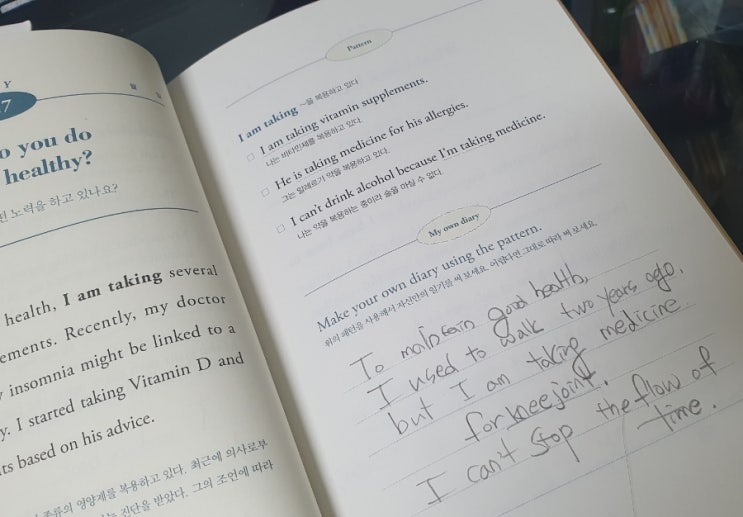 Y
7
o you do
healthy?
노력을 하고 있나요?
health, I am taking several
ements. Recently, my doctor
insomnia might be linked to a
y. I started taking Vitamin D and
ts based on his advice.
종류의 영양제를 복용하고 있다. 최근에 의사로부
진단을 받았다. 그의 조언에 따라
Pattern
I am taking ~을 복용하고 있다
□ I am taking vitamin supplements.
나는 비타민제를 복용하고 있다.
□ He is taking medicine for his allergies.
그는 알레르기 약을 복용하고 있다.
□ I can't drink alcohol because I'm taking medicine.
나는 약을 복용하는 중이라 술을 마실 수 없다.
My own diary
Make your own diary using the pattern.
위의 패턴을 사용해서 자신만의 일기를 써 보세요. 어렵다면 그대로 따라 써 보세요.
To maintain good health,
I used to walk two years ago.
but I am taking medicine
for knee joint.
I can't stop the flow of
time.